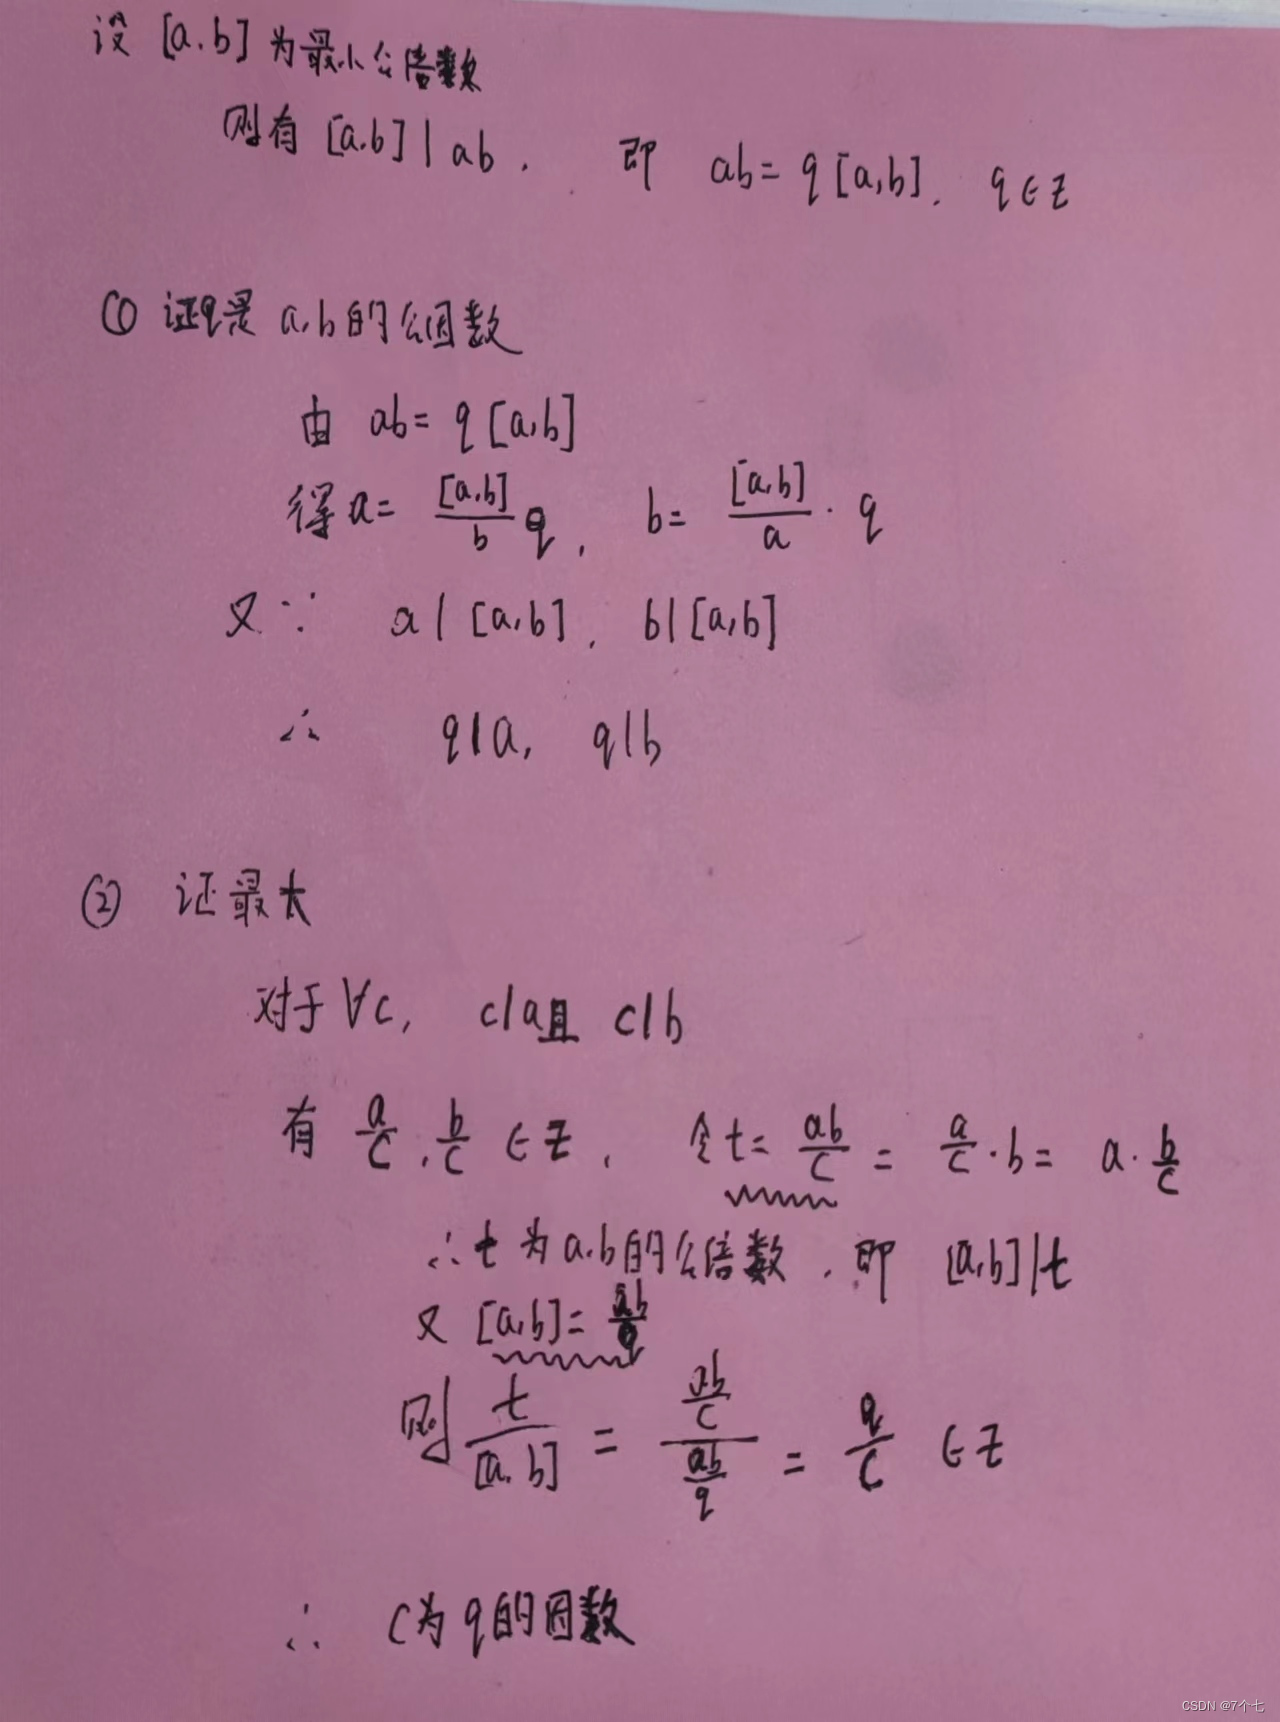 设 [a,b] 为最小公倍数
则有 [a,b] | ab , 即 ab = q [a,b] , q ∈ Z
① 证q是 a,b 的公因数
由 ab = q [a,b]
得 a = [a,b]/b q , b = [a,b]/a · q
又 ∵ a | [a,b] , b | [a,b]
∴ q | a , q | b
② 证最大
对于 ∀c , c | a 且 c | b
有 a/c , b/c ∈ Z , 令 t = ab/c = a/c · b = a · b/c
∴ t 为 a,b 的公倍数 , 即 [a,b] | t
又 [a,b] = ab/q
则 t/[a,b] = (ab/c)/(ab/q) = q/c ∈ Z
∴ c为 q 的因数
CSDN @7个七